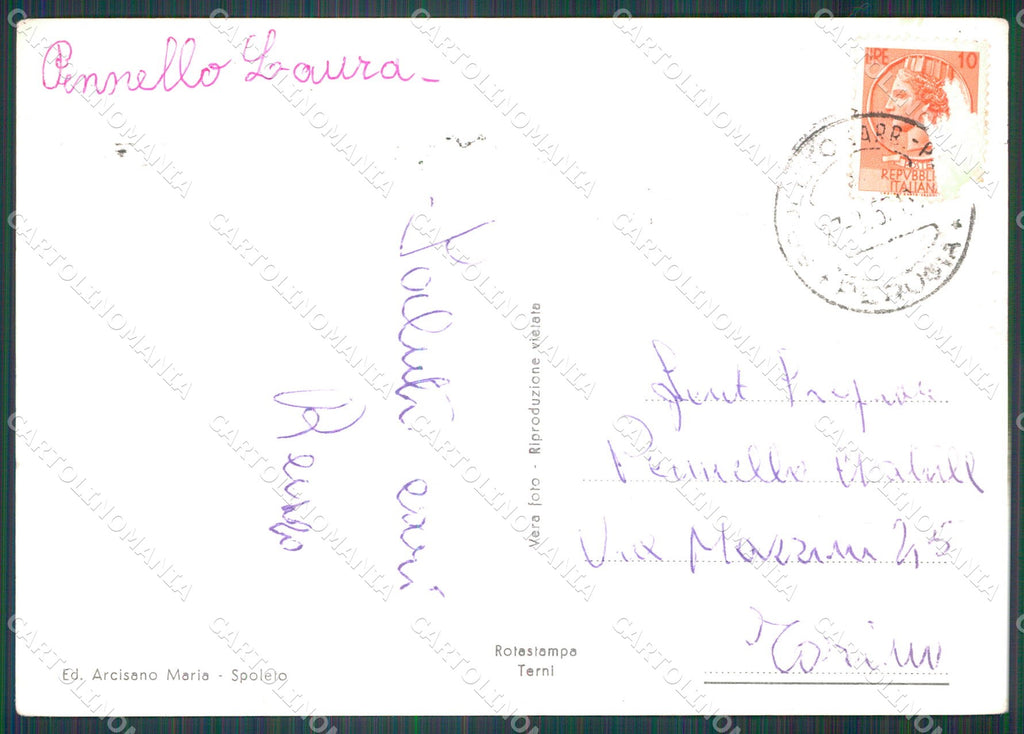 Pennello Laura -
LIRE 10
REPVBBLI
ITALIANA
PERUGIA
- Saluti cari
Renzo
Vera foto - Riproduzione vietata
Pennello
Via Mazzini 45
Torino
Rotastampa
Terni
Ed. Arcisano Maria - Spoleto
CARTOLINOMANIA